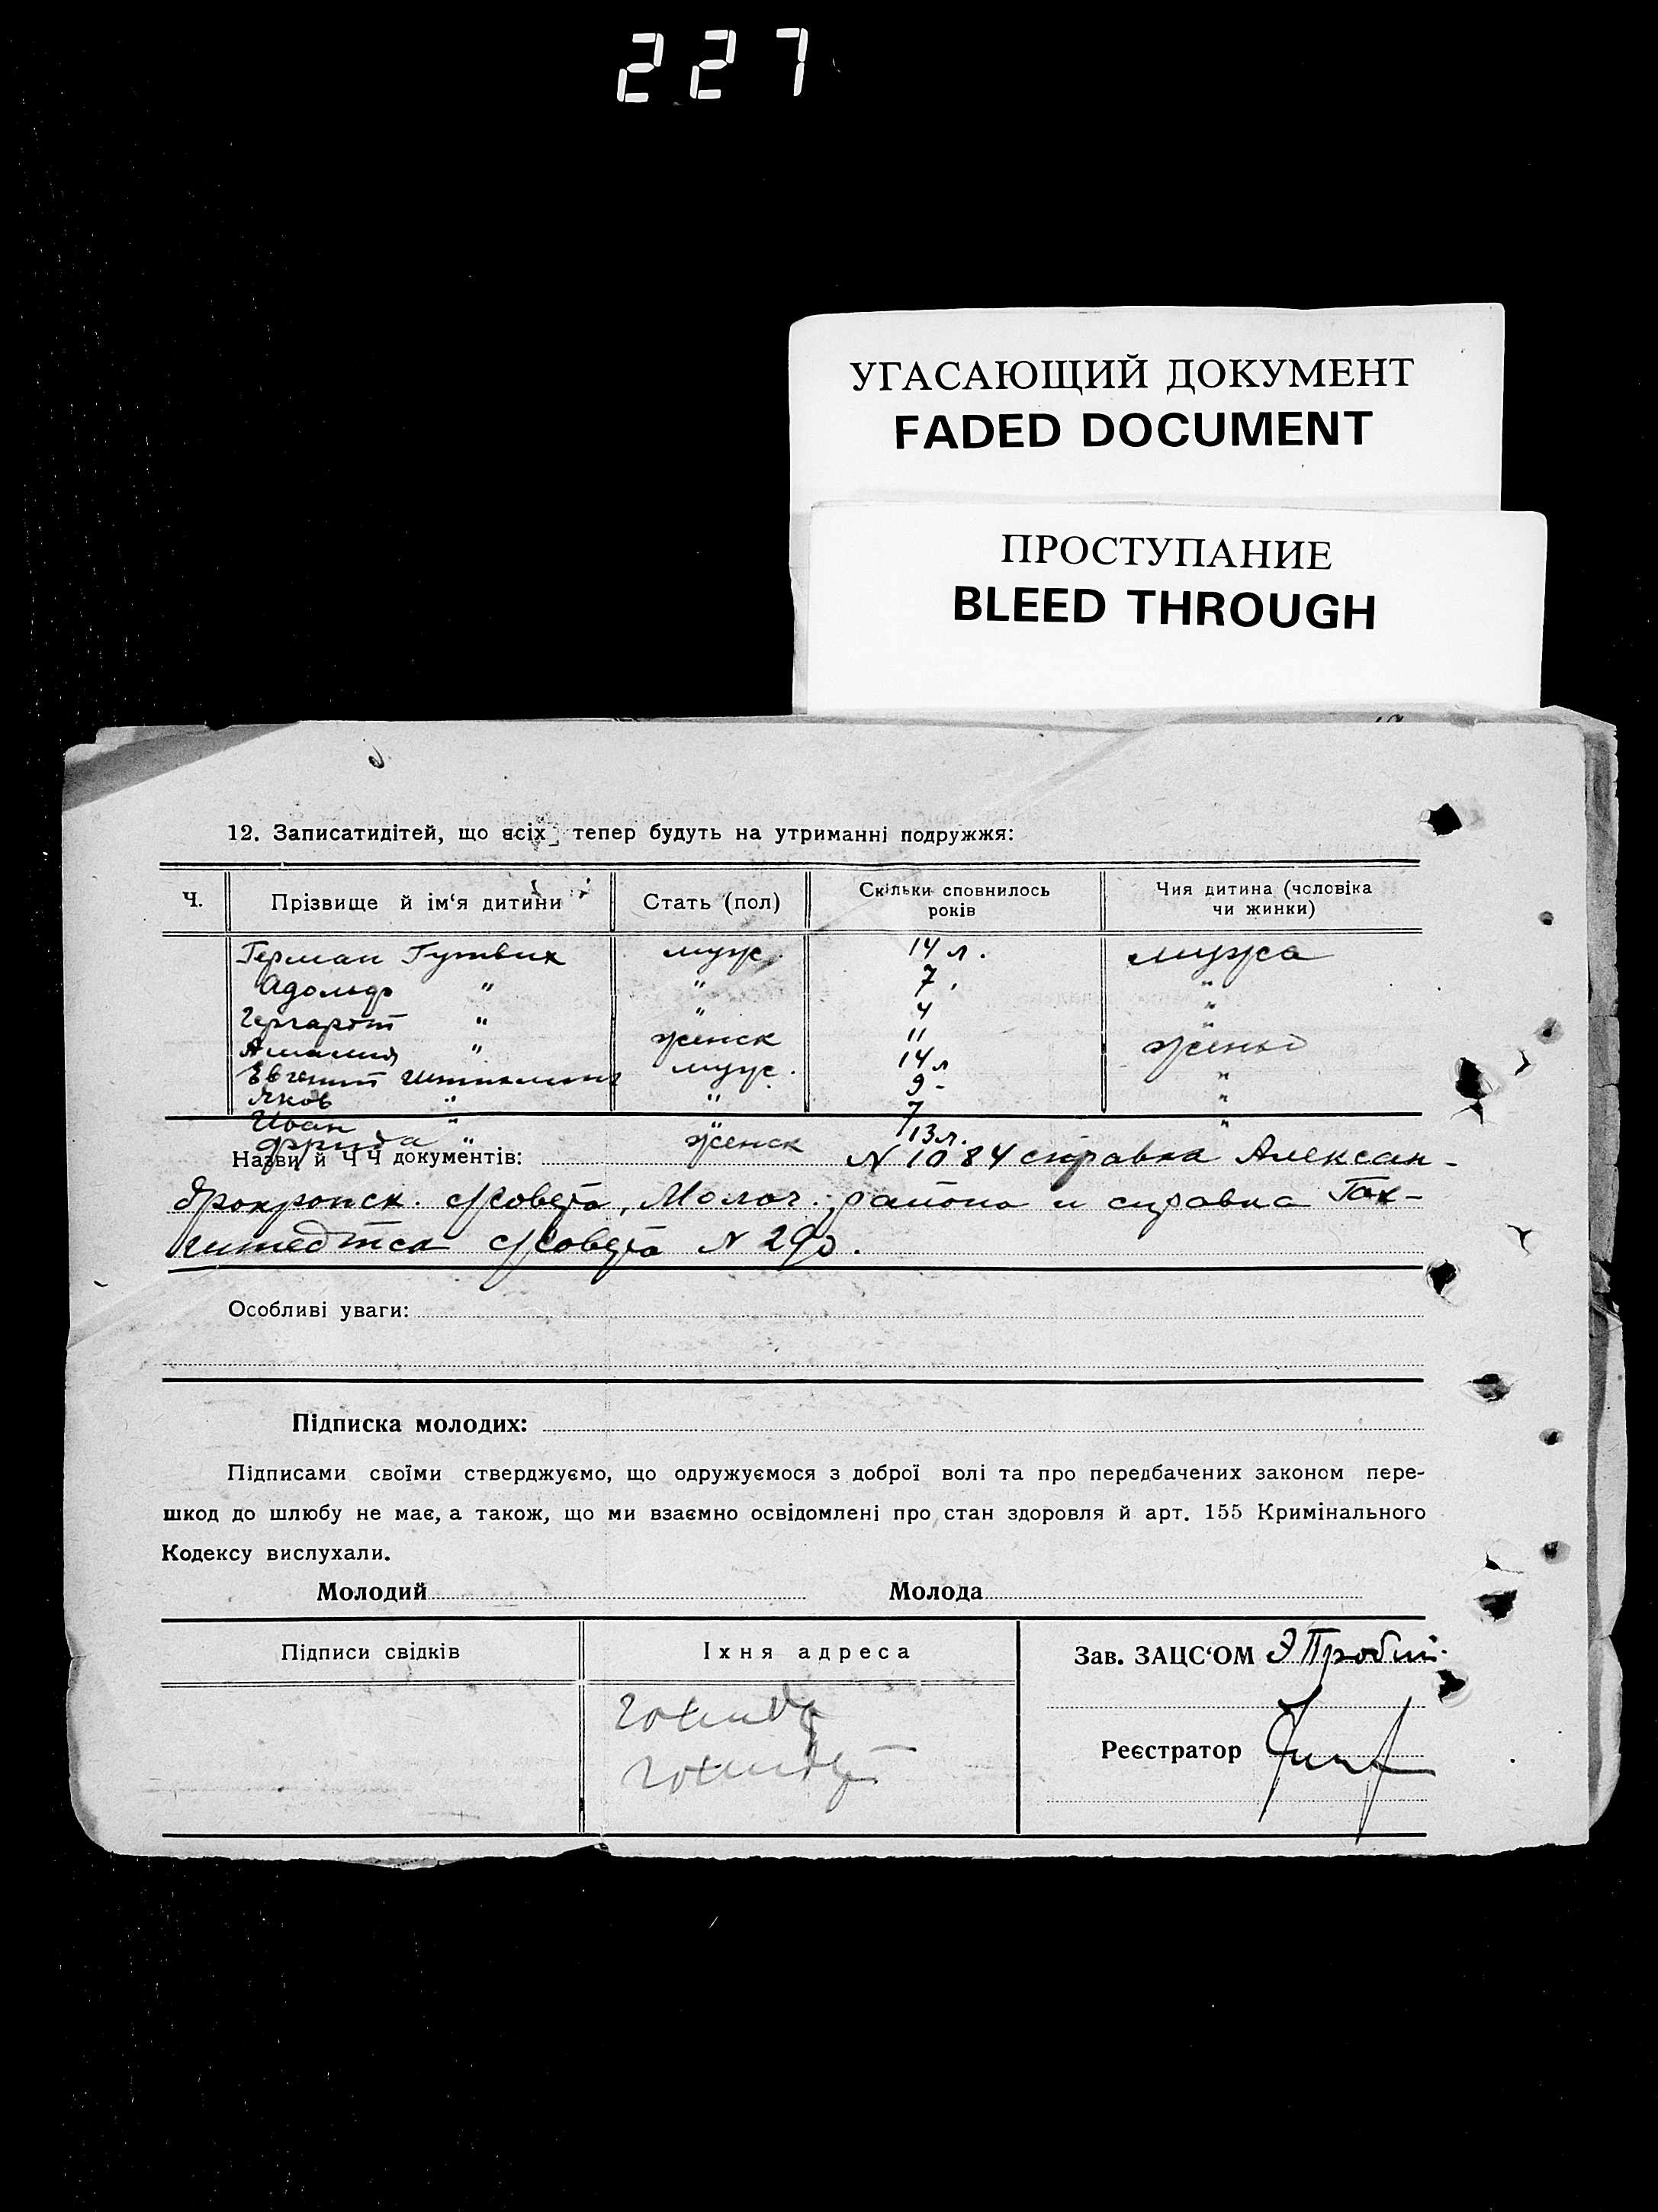 227
УГАСАЮЩИЙ ДОКУМЕНТ
FADED DOCUMENT
ПРОСТУПАНИЕ
BLEED THROUGH
12. Записатидітей, що всіх тепер будуть на утриманні подружжя:
Ч. Прізвище й ім‘я дитини Стать (пол) Скільки сповнилось років Чия дитина (чсловіка чи жинки)
Герман Гутвих муж. 14 л. мужа
Адольф " " 7 "
Гергардт " " 4 "
Амалия " женск 11 "
Евгений муж. 14 л жены
Яков " " 9 - "
Иван " " 7 "
Фрида " женск 13 л. "
Назви й ЧЧ документів: N 1084 справка Алексан-
дрокронск. с/совета, Молоч. района и справка
с/совета N 290.
Особливі уваги:
Підписка молодих:
Підписами своїми стверджуємо, що одружуємося з доброї волі та про передбачених законом пере-
шкод до шлюбу не має, а також, що ми взаємно освідомлені про стан здоровля й арт. 155 Кримінального
Кодексу вислухали.
Молодий Молода
Підписи свідків Іхня адреса Зав. ЗАЦС‘ОМ
Реєстратор